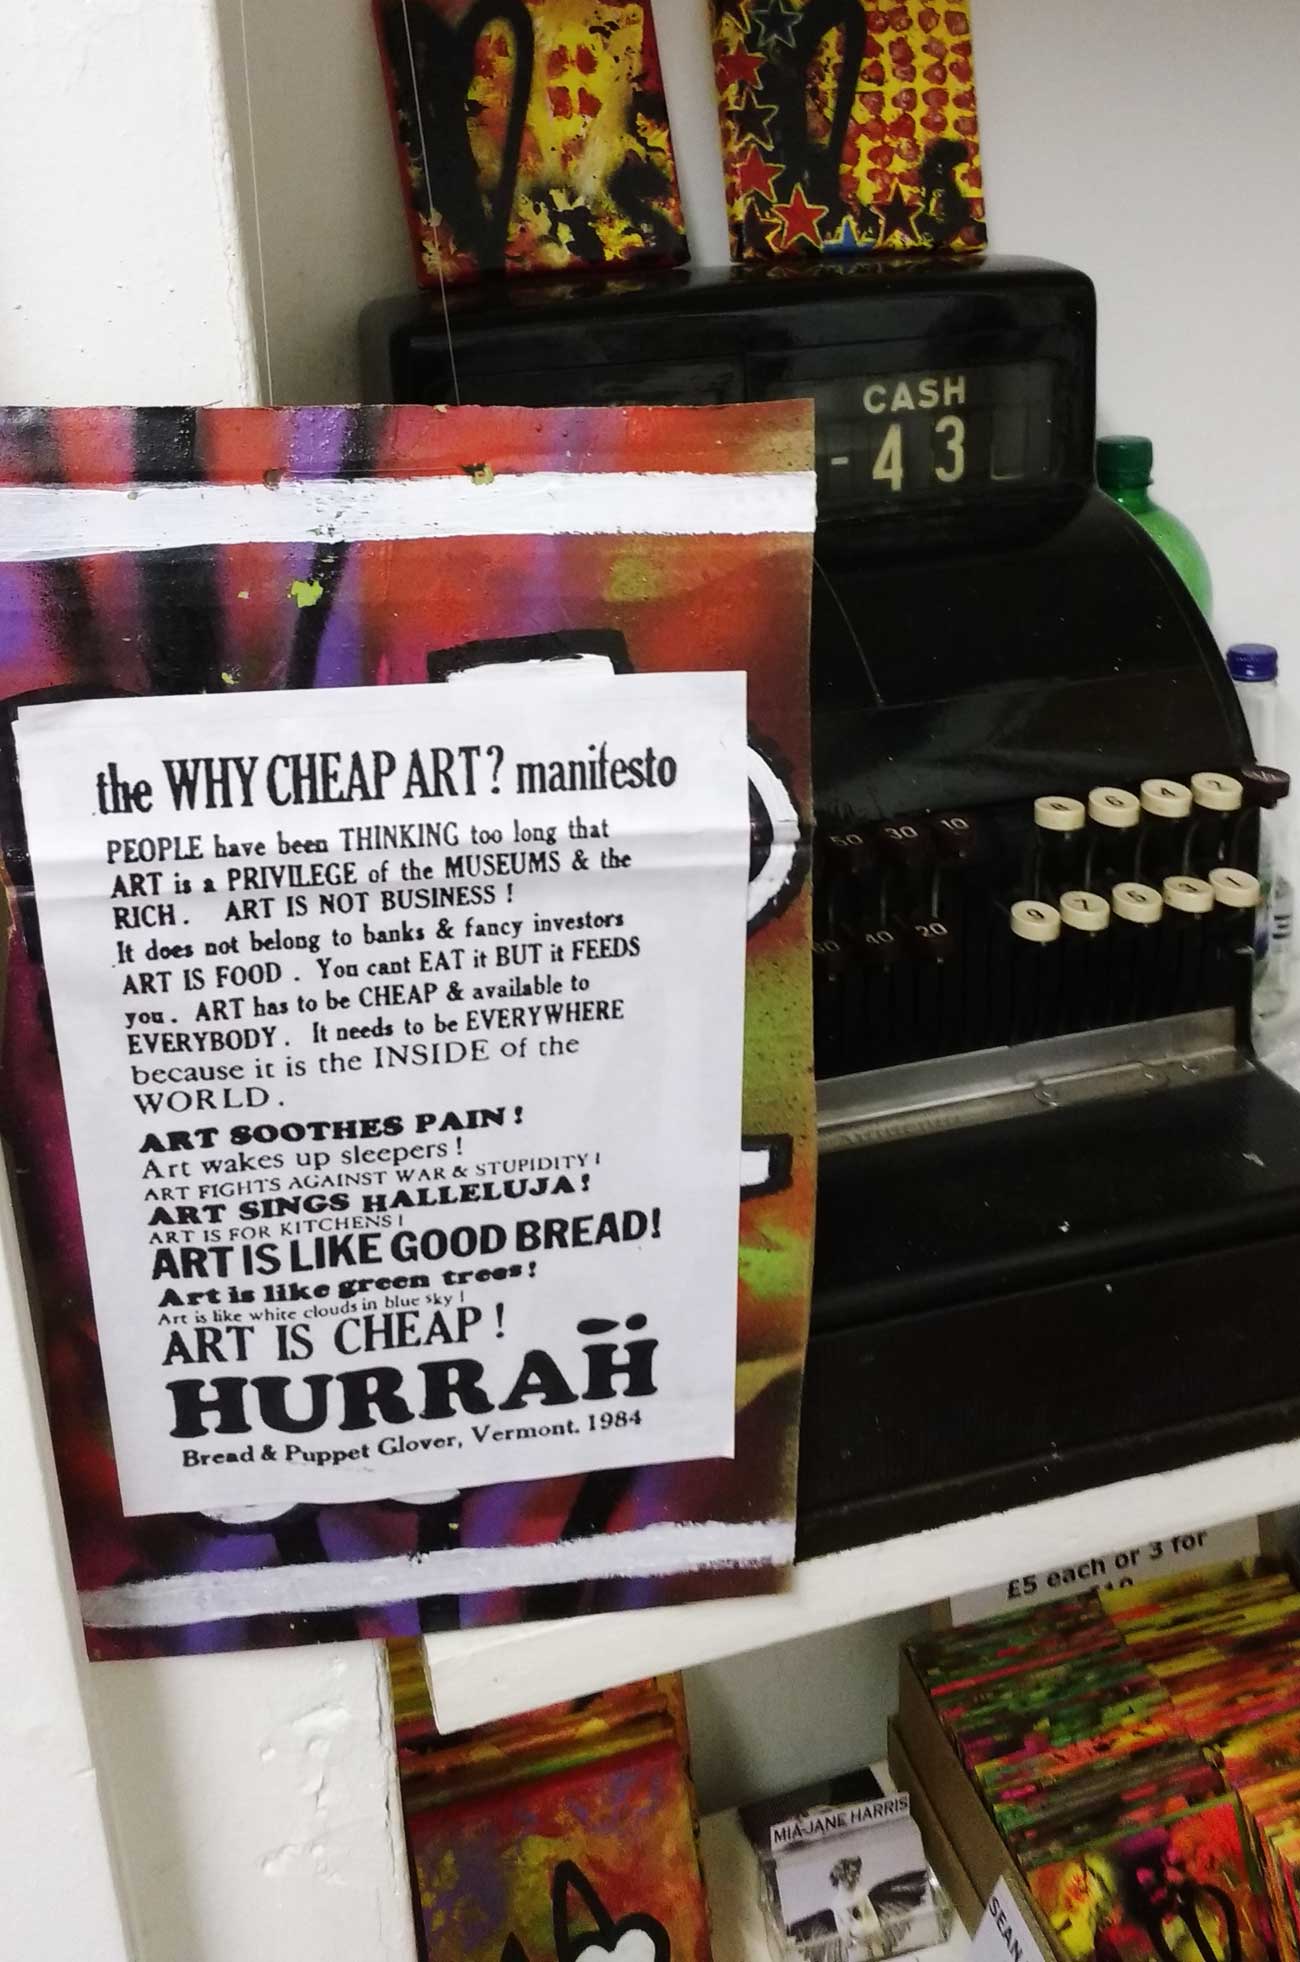 CASH
-43
the WHY CHEAP ART? manifesto
PEOPLE have been THINKING too long that
ART is a PRIVILEGE of the MUSEUMS & the
RICH. ART IS NOT BUSINESS !
It does not belong to banks & fancy investors
ART IS FOOD . You cant EAT it BUT it FEEDS
you. ART has to be CHEAP & available to
EVERYBODY. It needs to be EVERYWHERE
because it is the INSIDE of the
WORLD.
ART SOOTHES PAIN!
Art wakes up sleepers!
ART FIGHTS AGAINST WAR & STUPIDITY!
ART SINGS HALLELUJA!
ART IS FOR KITCHENS!
ART IS LIKE GOOD BREAD!
Art is like green trees!
Art is like white clouds in blue sky!
ART IS CHEAP!
HURRAH
Bread & Puppet Glover, Vermont. 1984
50 30 10
40 20
8 6 4 2
9 7 5 3 1
£5 each or 3 for
£10
MIA-JANE HARRIS
SEAN